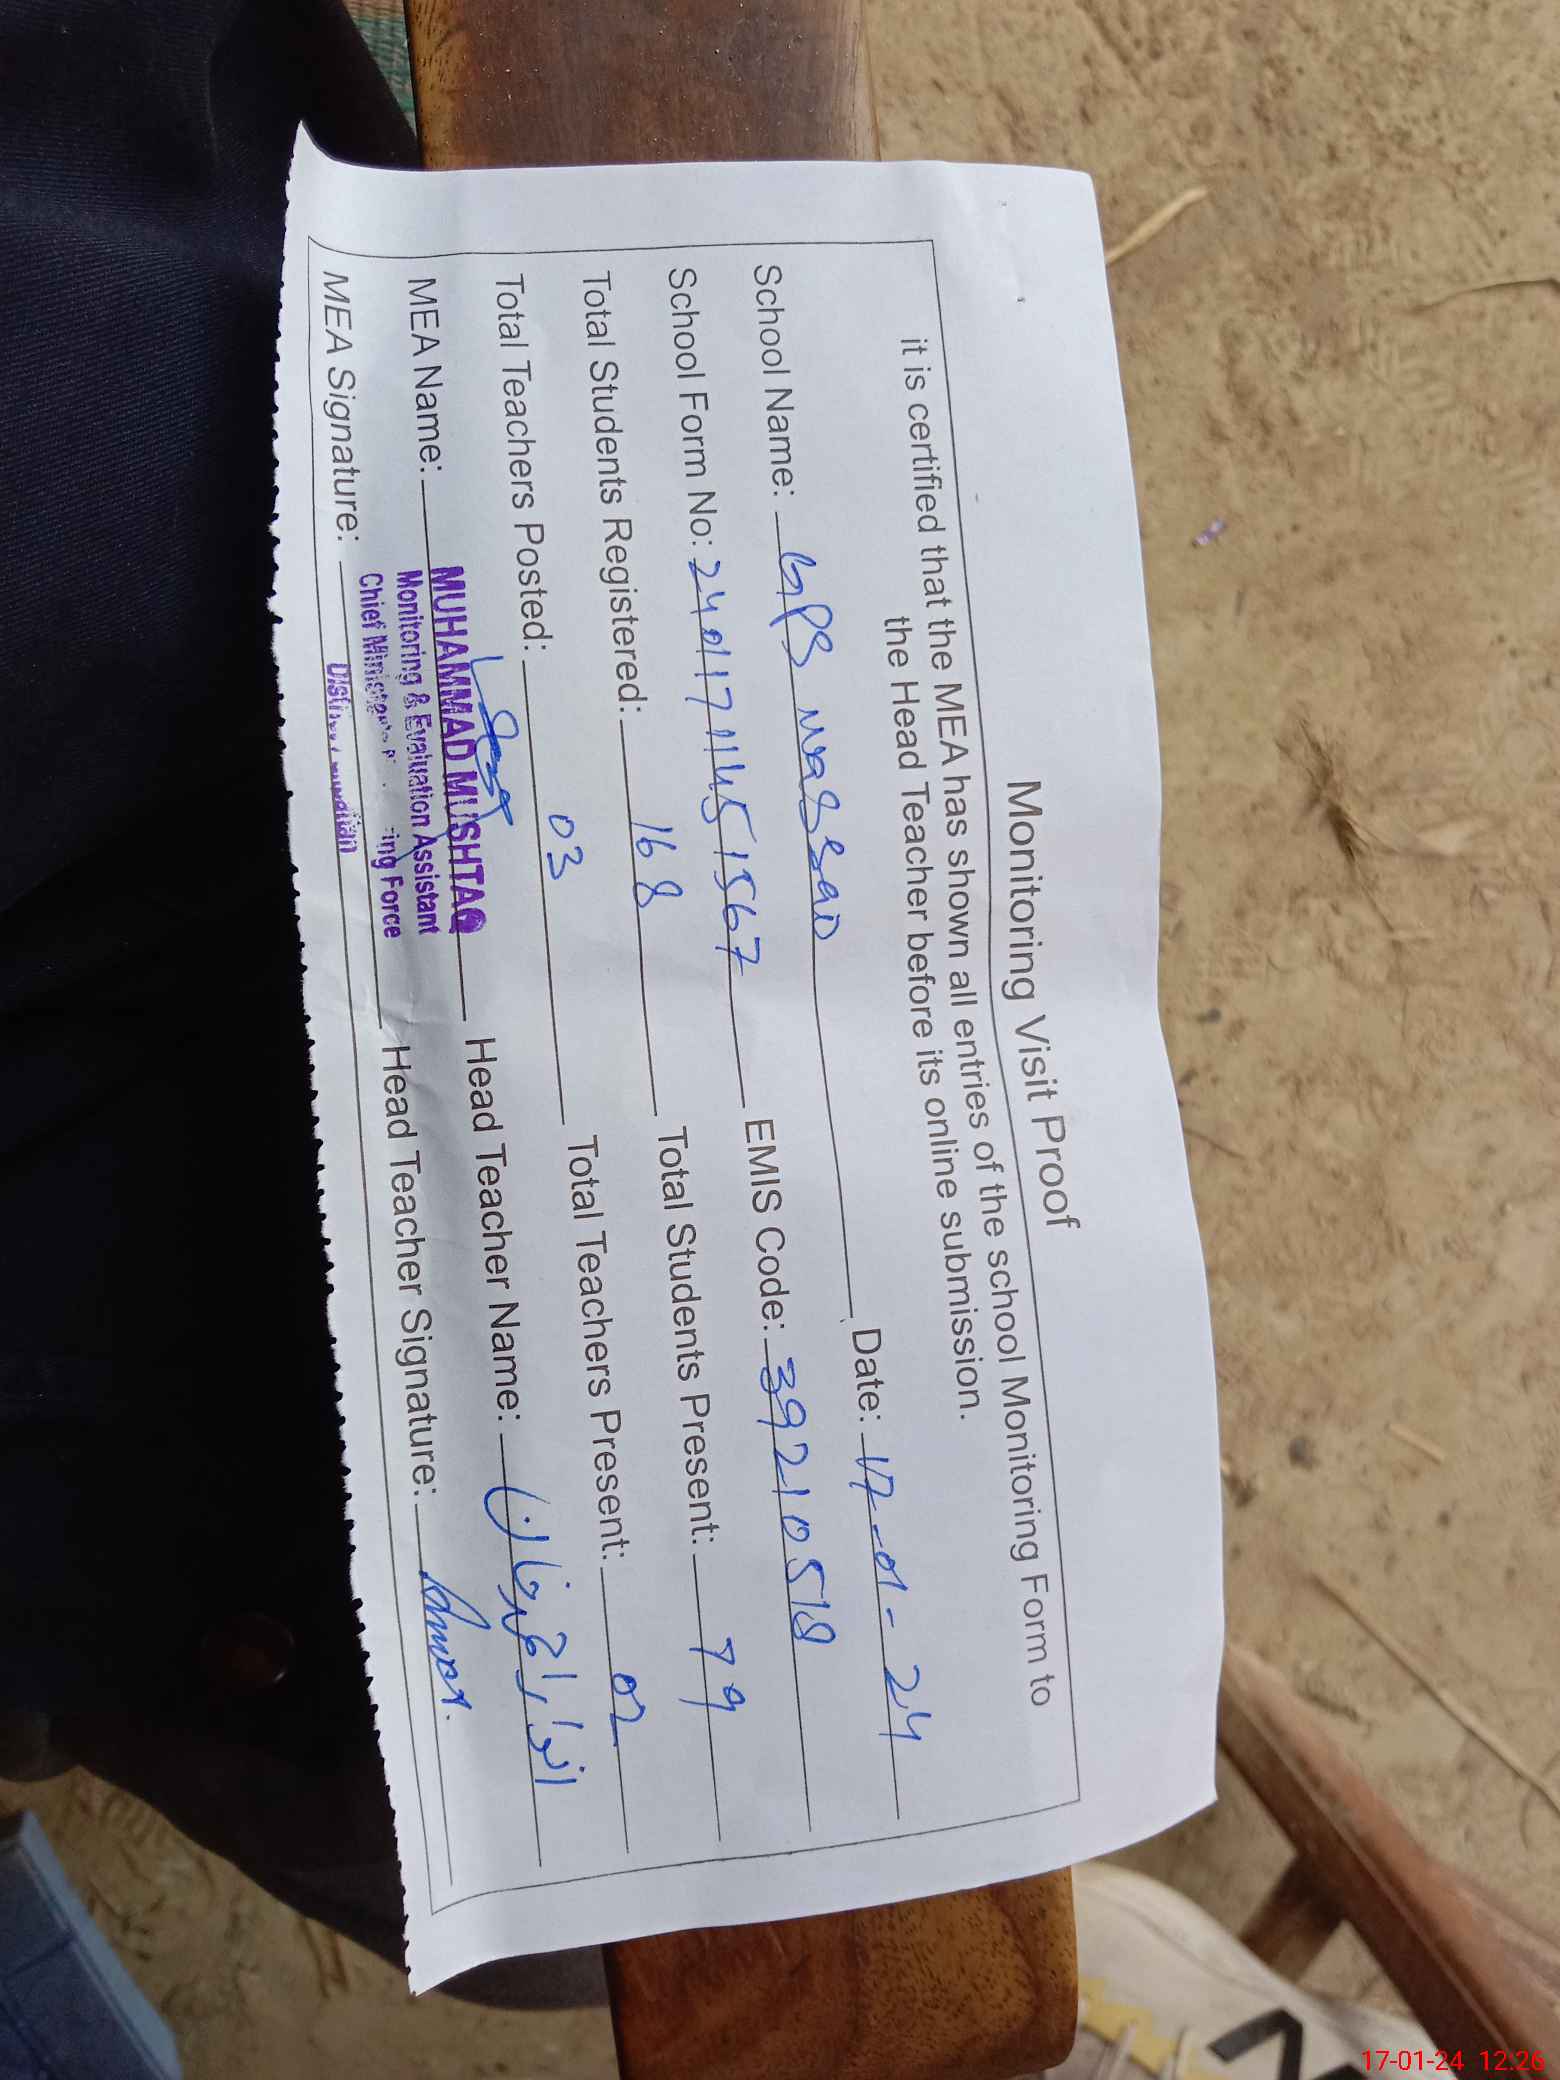 Monitoring Visit Proof
it is certified that the MEA has shown all entries of the school Monitoring Form to
the Head Teacher before its online submission.
School Name: GPS Date: 17-01-24
School Form No: 24011711451567 EMIS Code: 39210518
Total Students Registered: 168 Total Students Present: 79
Total Teachers Posted: 03 Total Teachers Present: 02
MEA Name: MUHAMMAD MUSHTAQ Head Teacher Name: انوار احمد خان
Monitoring & Evaluation Assistant
Chief Minister ing Force
MEA Signature: Head Teacher Signature:
17-01-24 12:26